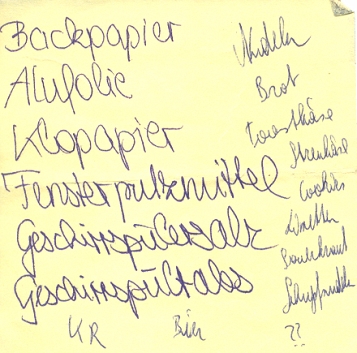 Backpapier
Alufolie
Klopapier
Fensterputzmittel
Geschirrspülersalz
Geschirrspültabs
KR
Bier
Nudeln
Brot
Toastkäse
Streukäse
Cookies
Sauerkraut
Schupfnudeln
??